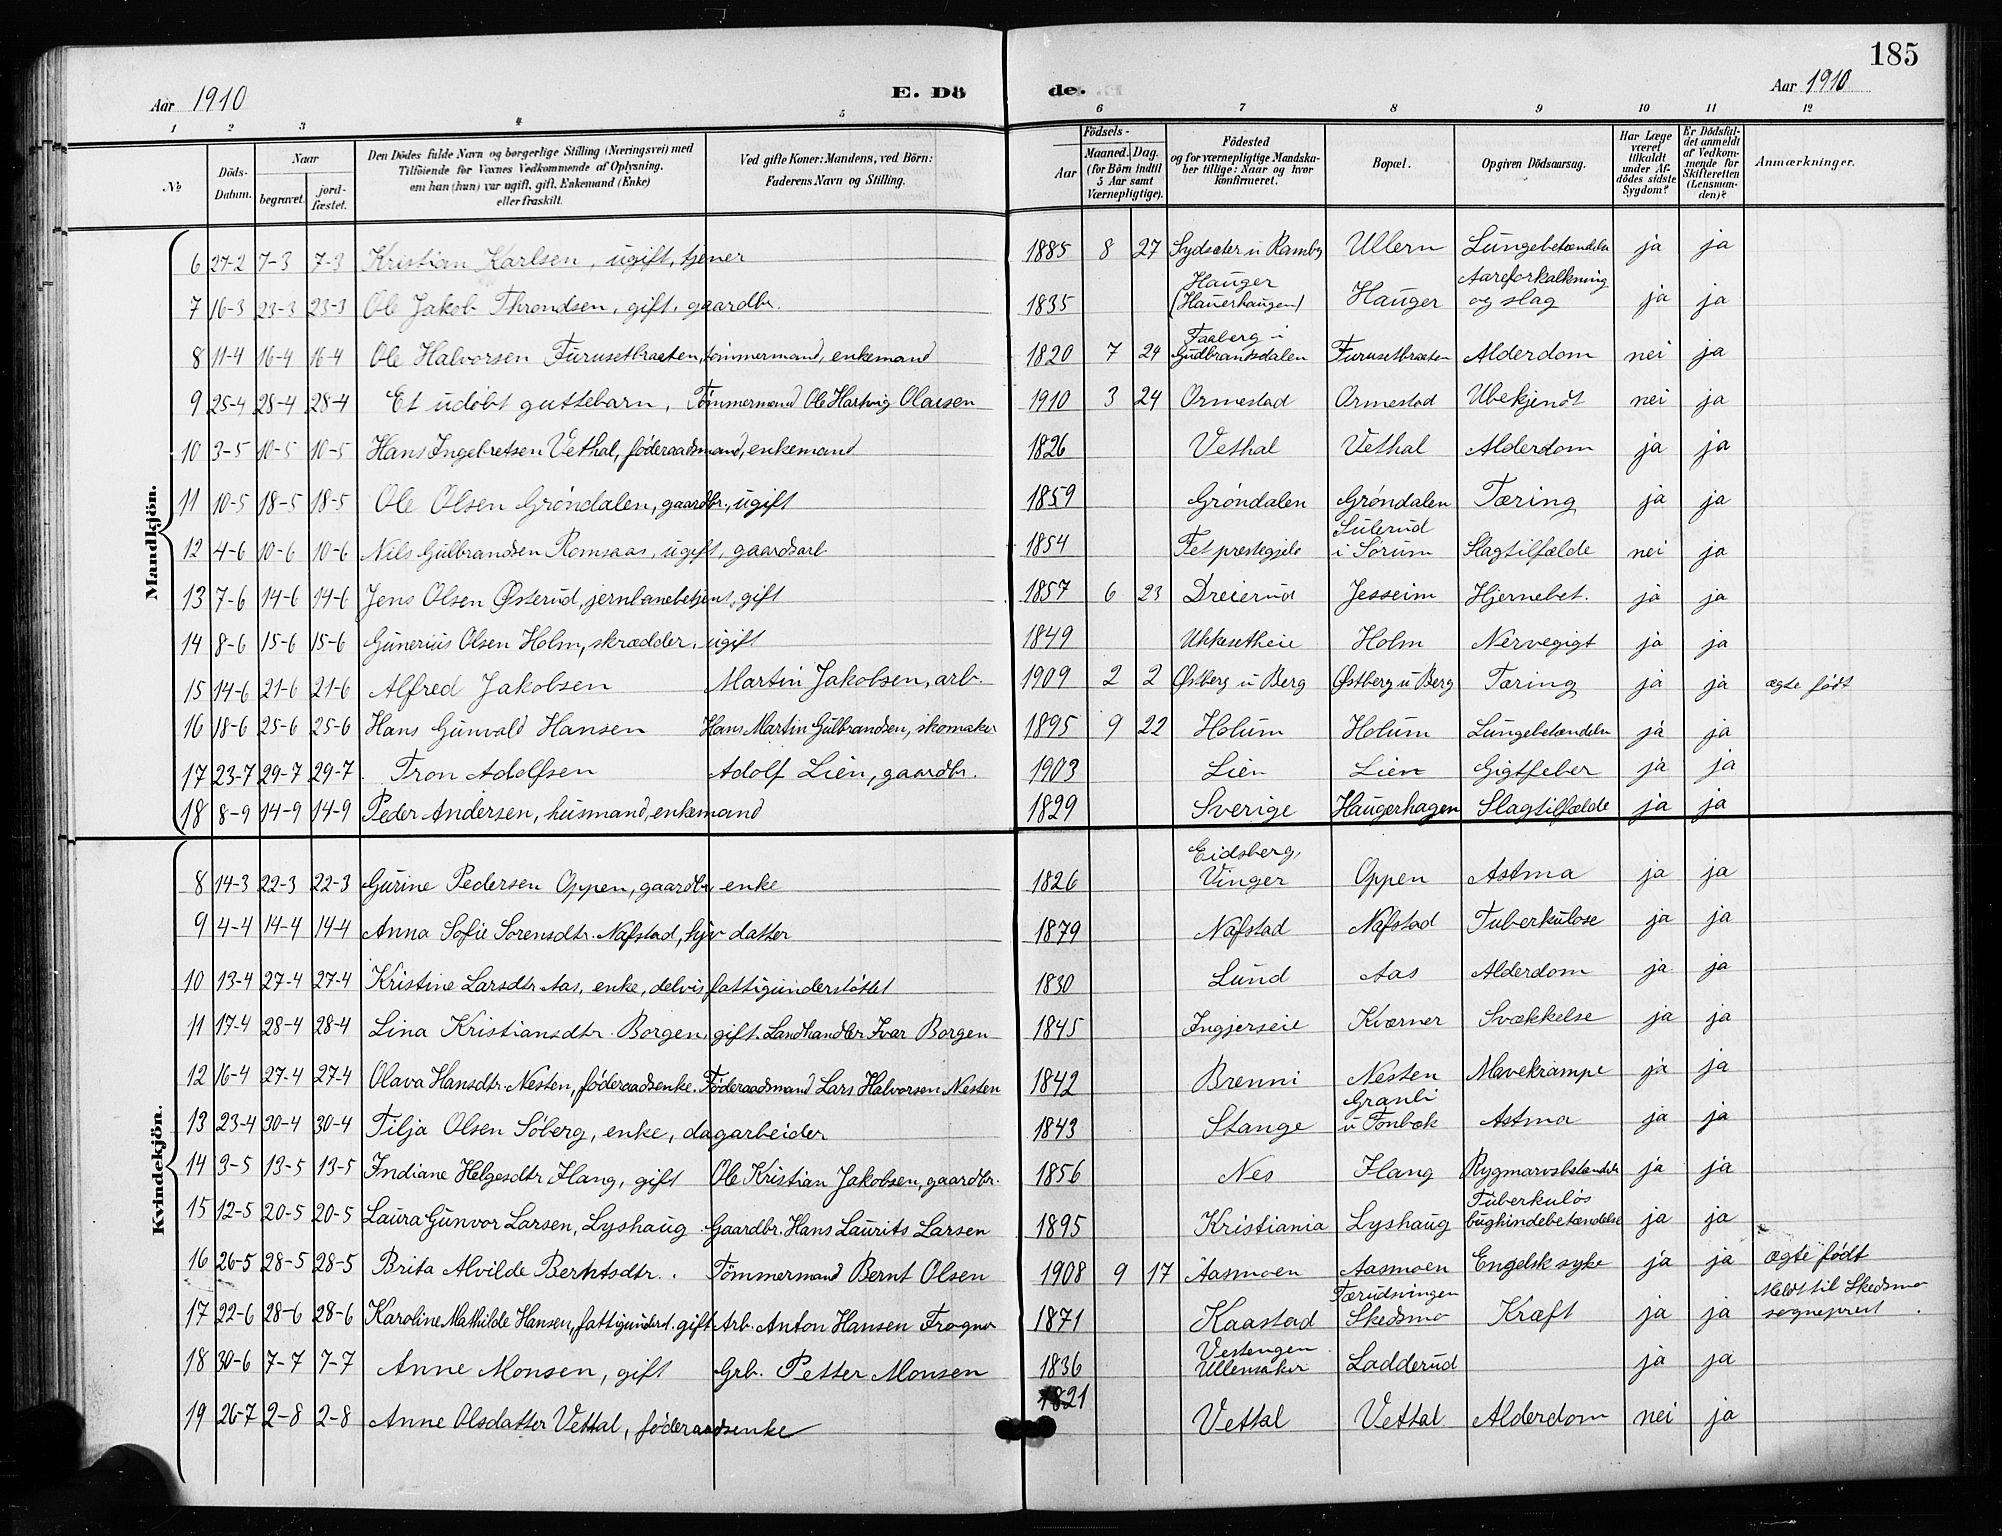 185
Aar 1910 E. Dö de. Aar 1910
1 2 3 4 5 6 7 8 9 10 11 12
No Döds-Datum. Naar begravet. jord-fæstet. Den Dödes fulde Navn og borgerlige Stilling (Næringsvei) med Tilföiende for Voxnes Vedkommende af Oplysning, om han (hun) var ugift, gift, Enkemand (Enke) eller fraskilt. Ved gifte Koner: Mandens, ved Börn: Faderens Navn og Stilling. Födsels- Aar Maaned. Dag. (for Börn indtil 5 Aar samt Værnepligtige). Födested og for værnepligtige Mandskaber tillige: Naar og hvor konfirmeret. Bopæl. Opgiven Dödsaarsag. Har Læge været tilkaldt under Afdödes sidste Sygdom? Er Dödsfaldet anmeldt af Vedkommende for Skifteretten (Lensmanden)? Anmærkninger.
Mandkjön.
6 27-2 7-3 7-3 Kristian Karlsen, ugift, tjener 1885 8 27 Sydsæter u Ramby Ullern Lungebetændelse ja ja
7 16-3 23-3 23-3 Ole Jakob Throndsen, gift, gaardbr. 1835 Hauger (Hauerhaugen) Hauger Aareforkalkning og slag ja ja
8 11-4 16-4 16-4 Ole Halvorsen Furusetbraaten, tømmermand, enkemand 1820 7 24 Faaberg i Gudbrandsdalen Furusetbraaten Alderdom nei ja
9 25-4 28-4 28-4 Et udøbt guttebarn, Tømmermand Ole Hartvig Olausen 1910 3 24 Ormestad Ormestad Ubekjendt nei ja
10 3-5 10-5 10-5 Hans Ingebretsen Vethal, føderaadsmand, enkemand 1826 Vethal Vethal Alderdom ja ja
11 10-5 18-5 18-5 Ole Olsen Grøndalen, gaardbr., ugift 1859 Grøndalen Grøndalen Tæring ja ja
12 4-6 10-6 10-6 Nils Gulbrandsen Romsaas, ugift, gaardsarb. 1854 Fet prestegjeld Sulerud i Sørum Slagtilfælde nei ja
13 7-6 14-6 14-6 Jens Olsen Østerud, jernbanebetjent, gift 1857 6 23 Dreierud Jesseim Hjernebet. ja ja
14 8-6 15-6 15-6 Gunerius Olsen Holm, skrædder, ugift 1849 Ukkesetheie Holm Nervegigt ja ja
15 14-6 21-6 21-6 Alfred Jakobsen Martin Jakobsen, arb. 1909 2 2 Østberg u Berg Østberg u Berg Tæring ja ja ægte født
16 18-6 25-6 25-6 Hans Gunvald Hansen Hans Martin Gulbrandsen, skomaker 1895 9 22 Holum Holum Lungebetændelse ja ja
17 23-7 29-7 29-7 Tron Adolfsen Adolf Lien, gaardbr. 1903 Lien Lien Gigtfeber ja ja
18 8-9 14-9 14-9 Peder Andersen, husmand, enkemand 1829 Sverige Haugerhagen Slagtilfælde ja ja
Kvindekjön.
8 14-3 22-3 22-3 Gurine Pedersen Oppen, gaardbr enke 1826 Eidsberg, Vinger Oppen Astma ja ja
9 4-4 14-4 14-4 Anna Sofie Sorensdtr. Nafstad, datter 1879 Nafstad Nafstad Tuberkulose ja ja
10 13-4 27-4 27-4 Kristine Larsdtr Aas, enke, delvis fattigunderstøttet 1830 Lund Aas Alderdom ja ja
11 17-4 28-4 28-4 Lina Kristiansdtr. Borgen, gift. Landhandler Ivar Borgen 1845 Ingjerseie Kværner Svækkelse ja ja
12 16-4 27-4 27-4 Olava Hansdtr. Nesten, føderaadsenke. Føderaadsmand Lars Halvorsen Nesten 1842 Brenni Nesten Mavekrampe ja ja
13 23-4 30-4 30-4 Tilja Olsen Søberg, enke, dagarbeider 1843 Stange Granli u Tonbæk Astma ja ja
14 3-5 13-5 13-5 Indiane Helgesdtr Hang, gift Ole Kristian Jakobsen, gaardbr. 1856 Nes Hang Rygmarvsbetændelse ja ja
15 12-5 20-5 20-5 Laura Gunvor Larsen, Lyshaug Gaardbr. Hans Laurits Larsen 1895 Kristiania Lyshaug Tuberkuløs bughindebetændelse ja ja
16 26-5 28-5 28-5 Brita Alvilde Berntsdtr. Tømmermand Bernt Olsen 1908 9 17 Aasmoen Aasmoen Engelsk syke ja ja ægte født
17 22-6 28-6 28-6 Karoline Mathilde Hansen, fattigunderst. gift Arb. Anton Hansen Frogner 1871 Kaastad Færudsvingen Skedsmo Kræft ja ja Meldt til Skedsmo sogneprest.
18 30-6 7-7 7-7 Anne Monsen, gift Grb. Petter Monsen 1836 Vestengen Ullensaker Ladderud ja ja
19 26-7 2-8 2-8 Anne Olsdatter Vettal, føderaadsenke 1821 Vettal Vettal Alderdom nei ja